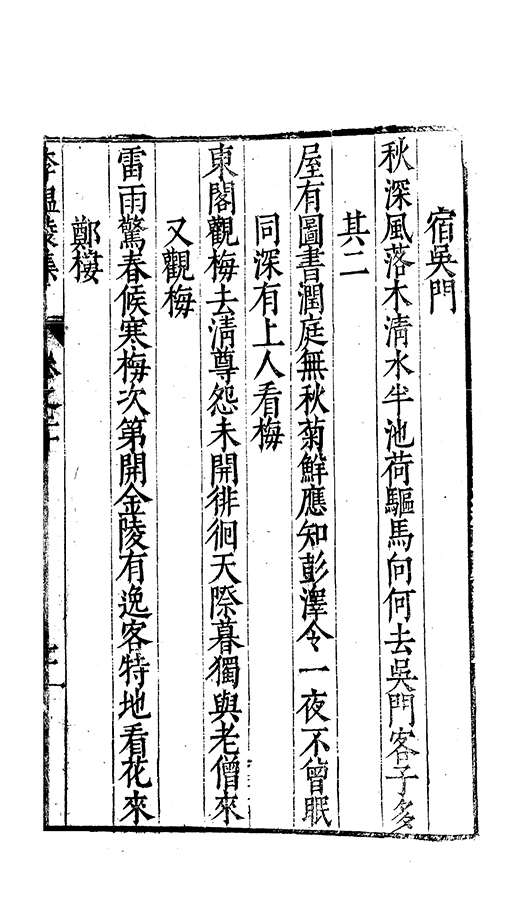 宿吳門
秋深風落木清水半池荷驅馬向何去吳門客子多
其二
屋有圖書潤庭無秋菊鮮應知彭澤令一夜不曾眠
同深有上人看梅
東閣觀梅去清尊怨未開徘徊天際暮獨與老僧來
又觀梅
雷雨驚春候寒梅次第開金陵有逸客特地看花來
鄭樓
李溫陵集